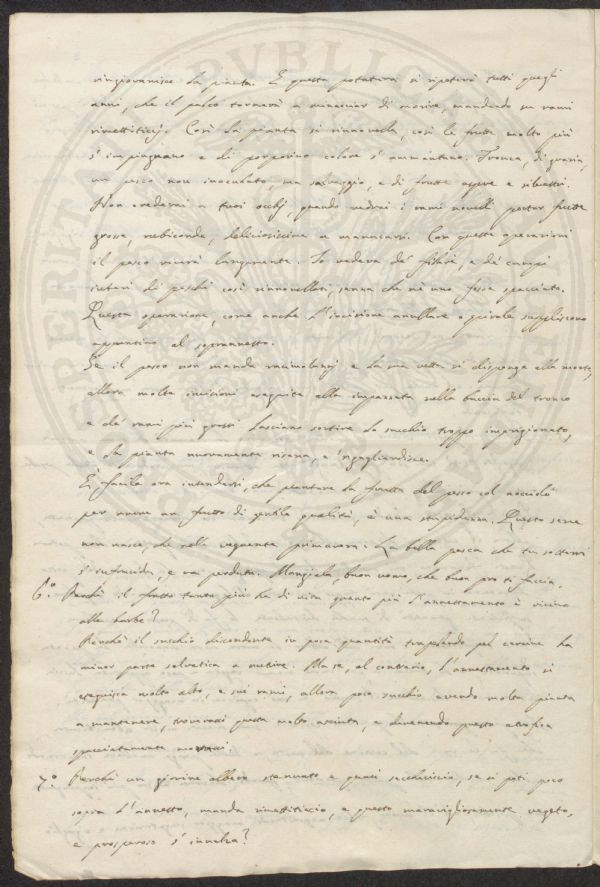 ringiovanisce la pianta. E questa potatura si ripeterà tutti quegli
anni, che il pesco tornerà a minacciar di morire, mandando su rami
rimettiticcj. Così la pianta si rinnovella, così le frutte molto più
s'impinguano e di porporino colore s'ammantano. Tronca, di grazia,
un pesco non inoculato, ma salvaggio, e di frutte aspre e
Non crederai a tuoi occhj, quando vedrai i rami novelli portar frutte
grosse, rubiconde, deliciosissime a mangiarsi. Con queste operazioni
il pesco viverà lungamente. Io vedeva de' filari, e de' campi
interi di peschi così rinnovellati, senza che nè uno fosse spacciato.
Questa operazione, come anche l'incisione anullare o spirale suppliscono
appuntino al soprannesto.
Se il pesco non manda e la sua vetta si disponga alla morte,
allora molte incisioni eseguite alla impazzata nella buccia del tronco
e de' rami più grossi lasciano sortire lo succhio troppo imprigionato,
e la pianta nuovamente risana, e ringagliardisce.
È facile ora intendersi, che piantare la frutta del pesco col nocciolo
per avere un frutto di gentile qualità, è una stupidezza. Questo seme
non nasce, che nella veguente primavera. La bella pesca che tu sotterri
s'infracida, e va perduta. Mangiala, buon uomo, che buon pro ti faccia.
6.° Perchè il frutto tanto più ha di vita quanto più l'annestamento è vicino
alle barbe?
Perchè il succhio discendente in poca quantità trapelando pel cercine ha
minor parte selvatica a nutrire. Ma se, al contrario, l'annestamento si
eseguisca molto alto, e sui rami, allora poco succhio avendo molta pianta
a mantenere, troverassi questa molto asciutta, e divenendo presto atrofica
spacciatamente
7.° Perchè un giovine albero stenuato e quasi secchericcio, se si poti poco
sopra l'annesto, manda rimettiticcio, e questo maravigliosamente vegeto,
e prosperoso s'innalza?